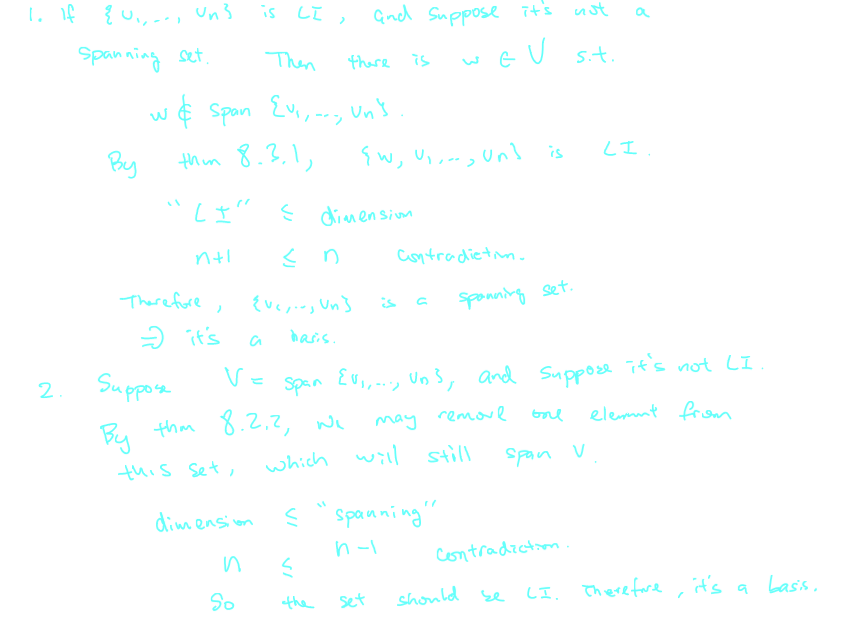 1. If {v₁,..., vₙ} is LI, and suppose it's not a
spanning set. Then there is w ∈ V s.t.
w ∉ span {v₁,..., vₙ}.
By thm 8.3.1, {w, v₁,..., vₙ} is LI.
"LI" ≤ dimension
n+1 ≤ n contradiction.
Therefore, {v₁,..., vₙ} is a spanning set.
⇒ it's a basis.
2. Suppose V = span {v₁,..., vₙ}, and suppose it's not LI.
By thm 8.2.2, we may remove one element from
this set, which will still span V.
dimension ≤ "spanning"
n ≤ n-1 contradiction.
So the set should be LI. Therefore, it's a basis.